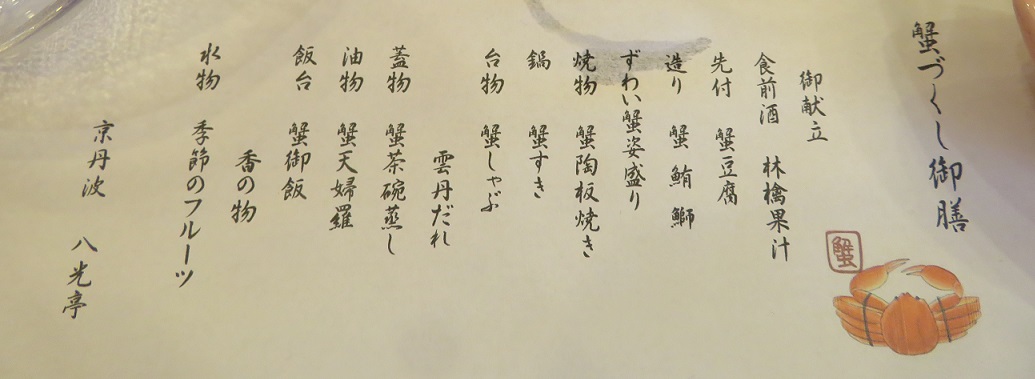 蟹づくし御膳
蟹
御献立
食前酒 林檎果汁
先付 蟹豆腐
造り 蟹 鮪 鰤
ずわい蟹姿盛り
焼物 蟹陶板焼き
鍋 蟹すき
台物 蟹しゃぶ
雲丹だれ
蓋物 蟹茶碗蒸し
油物 蟹天婦羅
飯台 蟹御飯
香の物
水物 季節のフルーツ
京丹波 八光亭